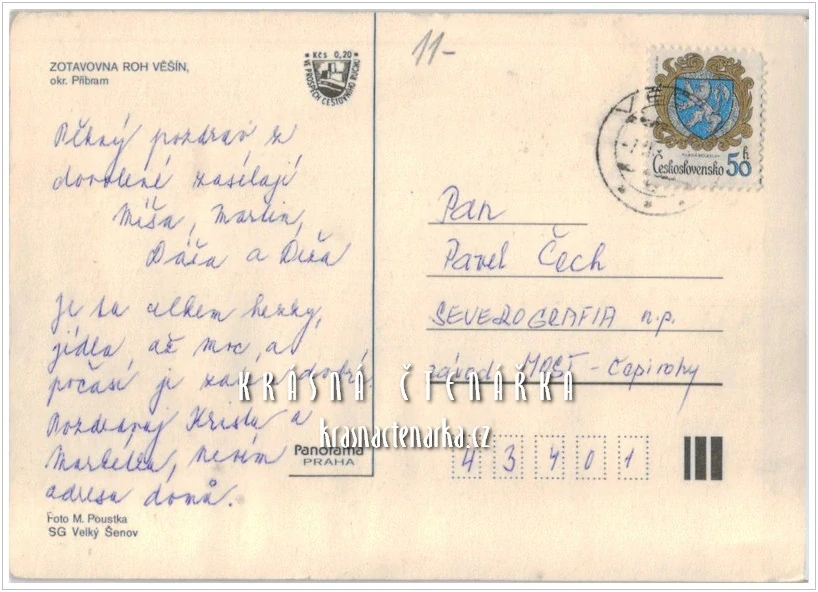 ZOTAVOVNA ROH VĚŠÍN,
okr. Příbram
Kčs 0,20
VE PROSPĚCH CESTOVNÍHO RUCHU
11-
Československo 50 h
Pěkný pozdrav z
dovolené zasílají
Míša, Martin,
Dáša a
Je tu celkem hezky,
jídla, až moc, a
počasí je
Pozdravuj Kristu a
Markétu, nevím
adresu domů.
Pan
Pavel Čech
SEVEROGRAFIA n.p.
závod MOST - Čepirohy
43401
KRÁSNÁ ČTENÁŘKA
krasnactenarka.cz
Panorama
PRAHA
Foto M. Poustka
SG Velký Šenov